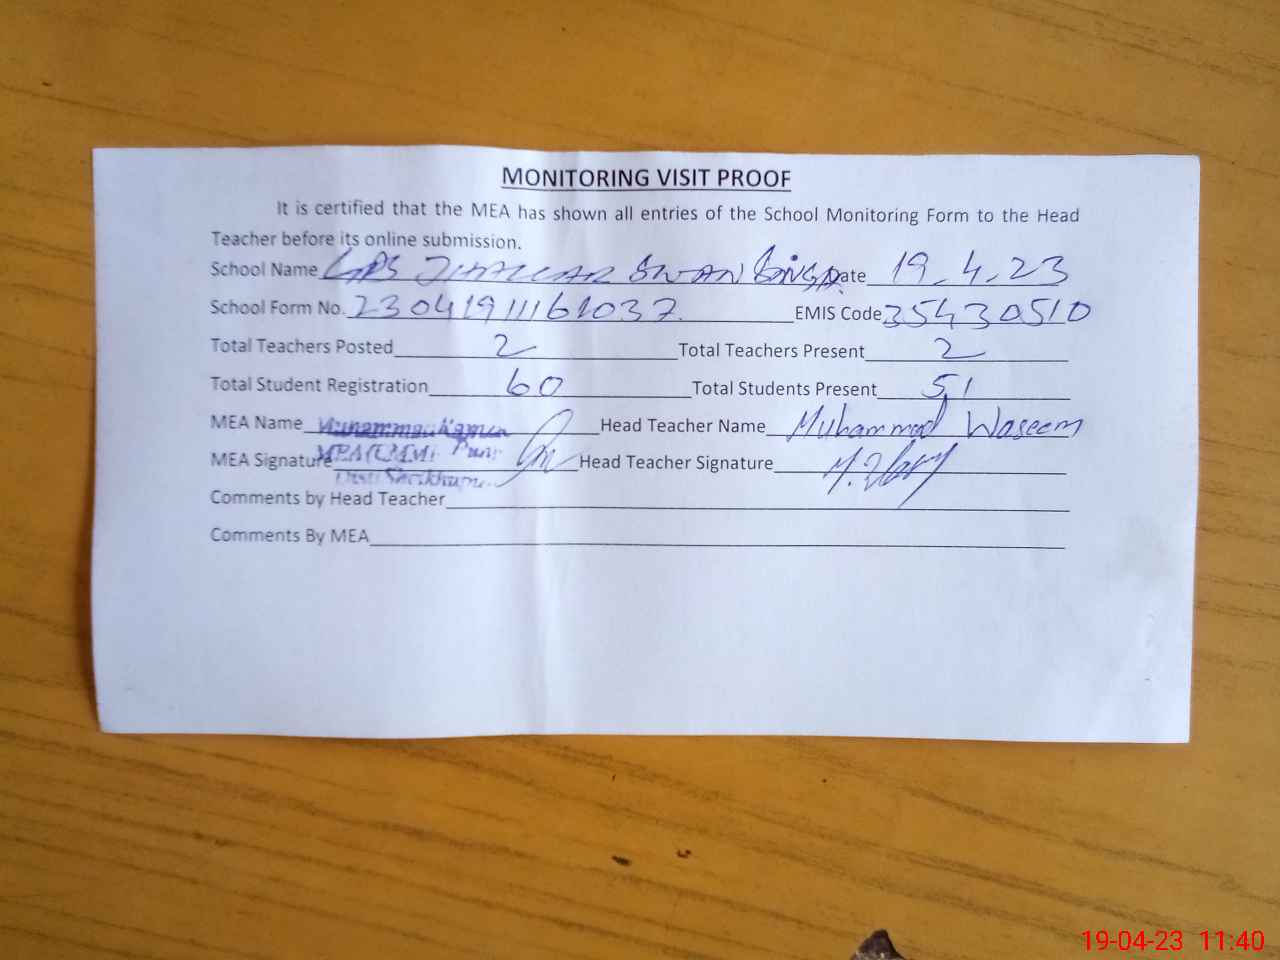 MONITORING VISIT PROOF
It is certified that the MEA has shown all entries of the School Monitoring Form to the Head
Teacher before its online submission.
School Name GPS JHALLAR Date 19.4.23
School Form No. 2304191116 EMIS Code 35430510
Total Teachers Posted 2 Total Teachers Present 2
Total Student Registration 60 Total Students Present 51
MEA Name Muhammad Head Teacher Name Muhammad Waseem
MEA Signature Head Teacher Signature
Comments by Head Teacher
Comments By MEA
19-04-23 11:40